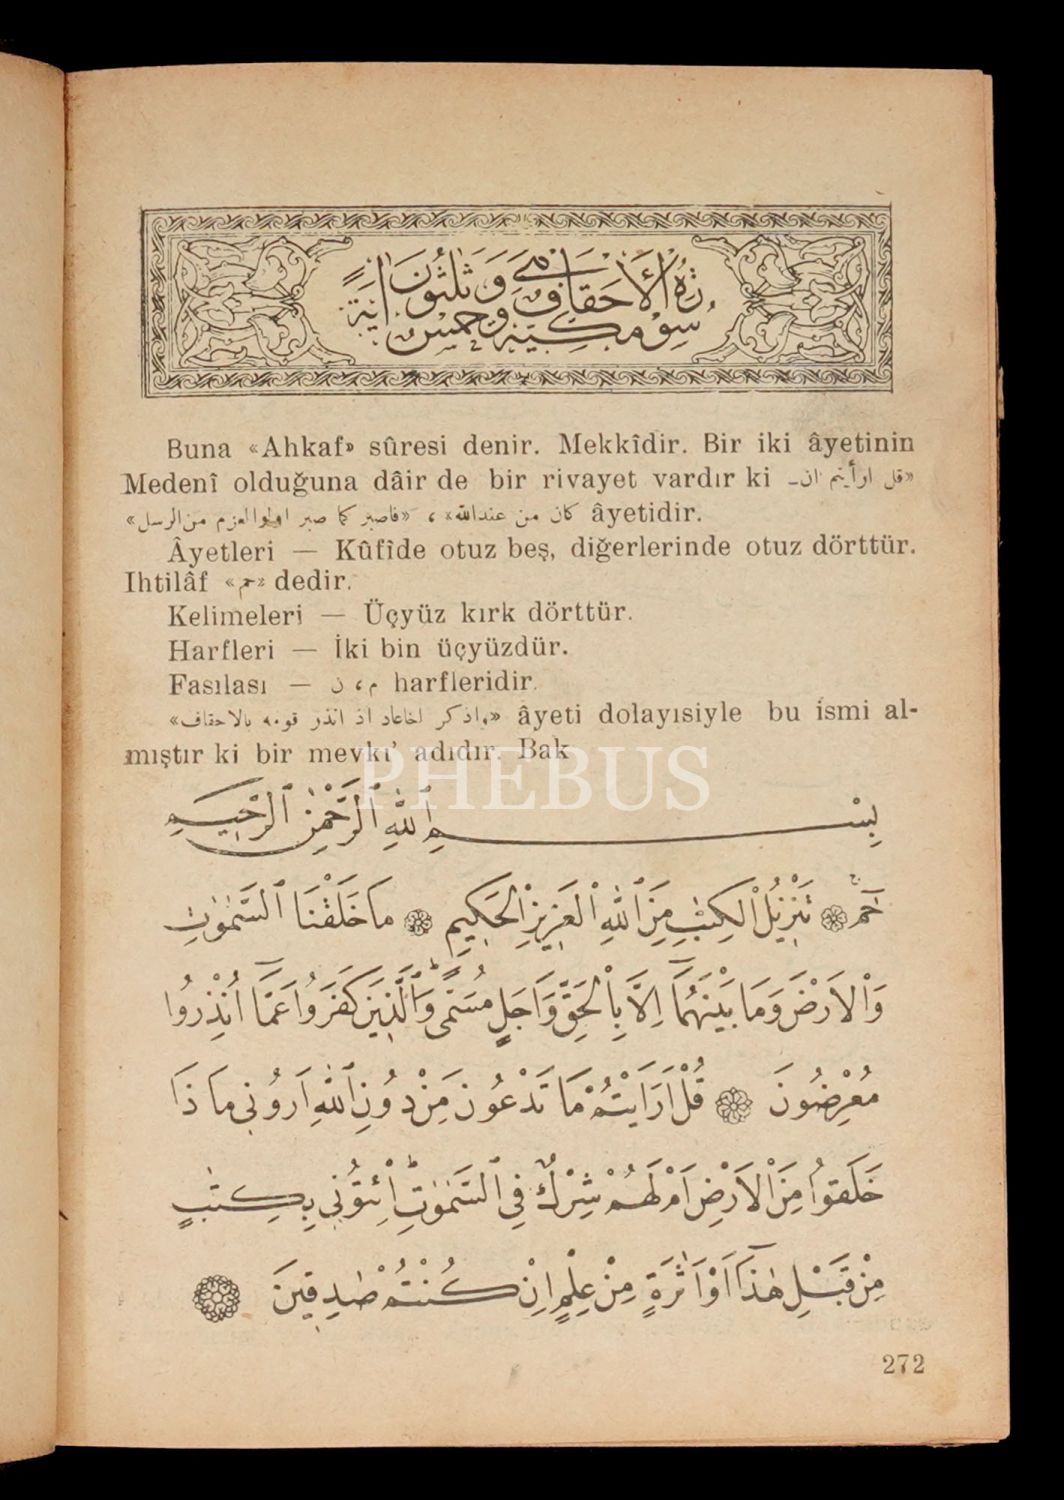 سورة الأحقاف مكية وهي خمس وثلثون اية
Buna «Ahkaf» sûresi denir. Mekkîdir. Bir iki âyetinin
Medenî olduğuna dâir de bir rivayet vardır ki «قل ارأيتم ان
كان من عندالله»، «فاصبر كما صبر اولوا العزم من الرسل» âyetidir.
Âyetleri — Kûfîde otuz beş, diğerlerinde otuz dörttür.
Ihtilâf «حم» dedir.
Kelimeleri — Üçyüz kırk dörttür.
Harfleri — İki bin üçyüzdür.
Fasılası — م، ن harfleridir.
«واذكر اخاعاد اذ انذر قومه بالاحقاف» âyeti dolayısiyle bu ismi al-
mıştır ki bir mevki' adıdır. Bak
PHEBUS
بِسْمِ اللّٰهِ الرَّحْمٰنِ الرَّحِيمِ
حٰمٓ ۞ تَنْزِيلُ الْكِتٰبِ مِنَ اللّٰهِ الْعَزِيزِ الْحَكِيمِ ۞ مَا خَلَقْنَا السَّمٰوٰتِ
وَالْاَرْضَ وَمَا بَيْنَهُمَٓا اِلَّا بِالْحَقِّ وَاَجَلٍ مُسَمًّى وَالَّذِينَ كَفَرُوا عَمَّٓا اُنْذِرُوا
مُعْرِضُونَ ۞ قُلْ اَرَاَيْتُمْ مَا تَدْعُونَ مِنْ دُونِ اللّٰهِ اَرُونِى مَا ذَا
خَلَقُوا مِنَ الْاَرْضِ اَمْ لَهُمْ شِرْكٌ فِى السَّمٰوٰتِ اِئْتُونِى بِكِتٰبٍ
مِنْ قَبْلِ هٰذَٓا اَوْ اَثٰرَةٍ مِنْ عِلْمٍ اِنْ كُنْتُمْ صٰدِقِينَ ۞
272